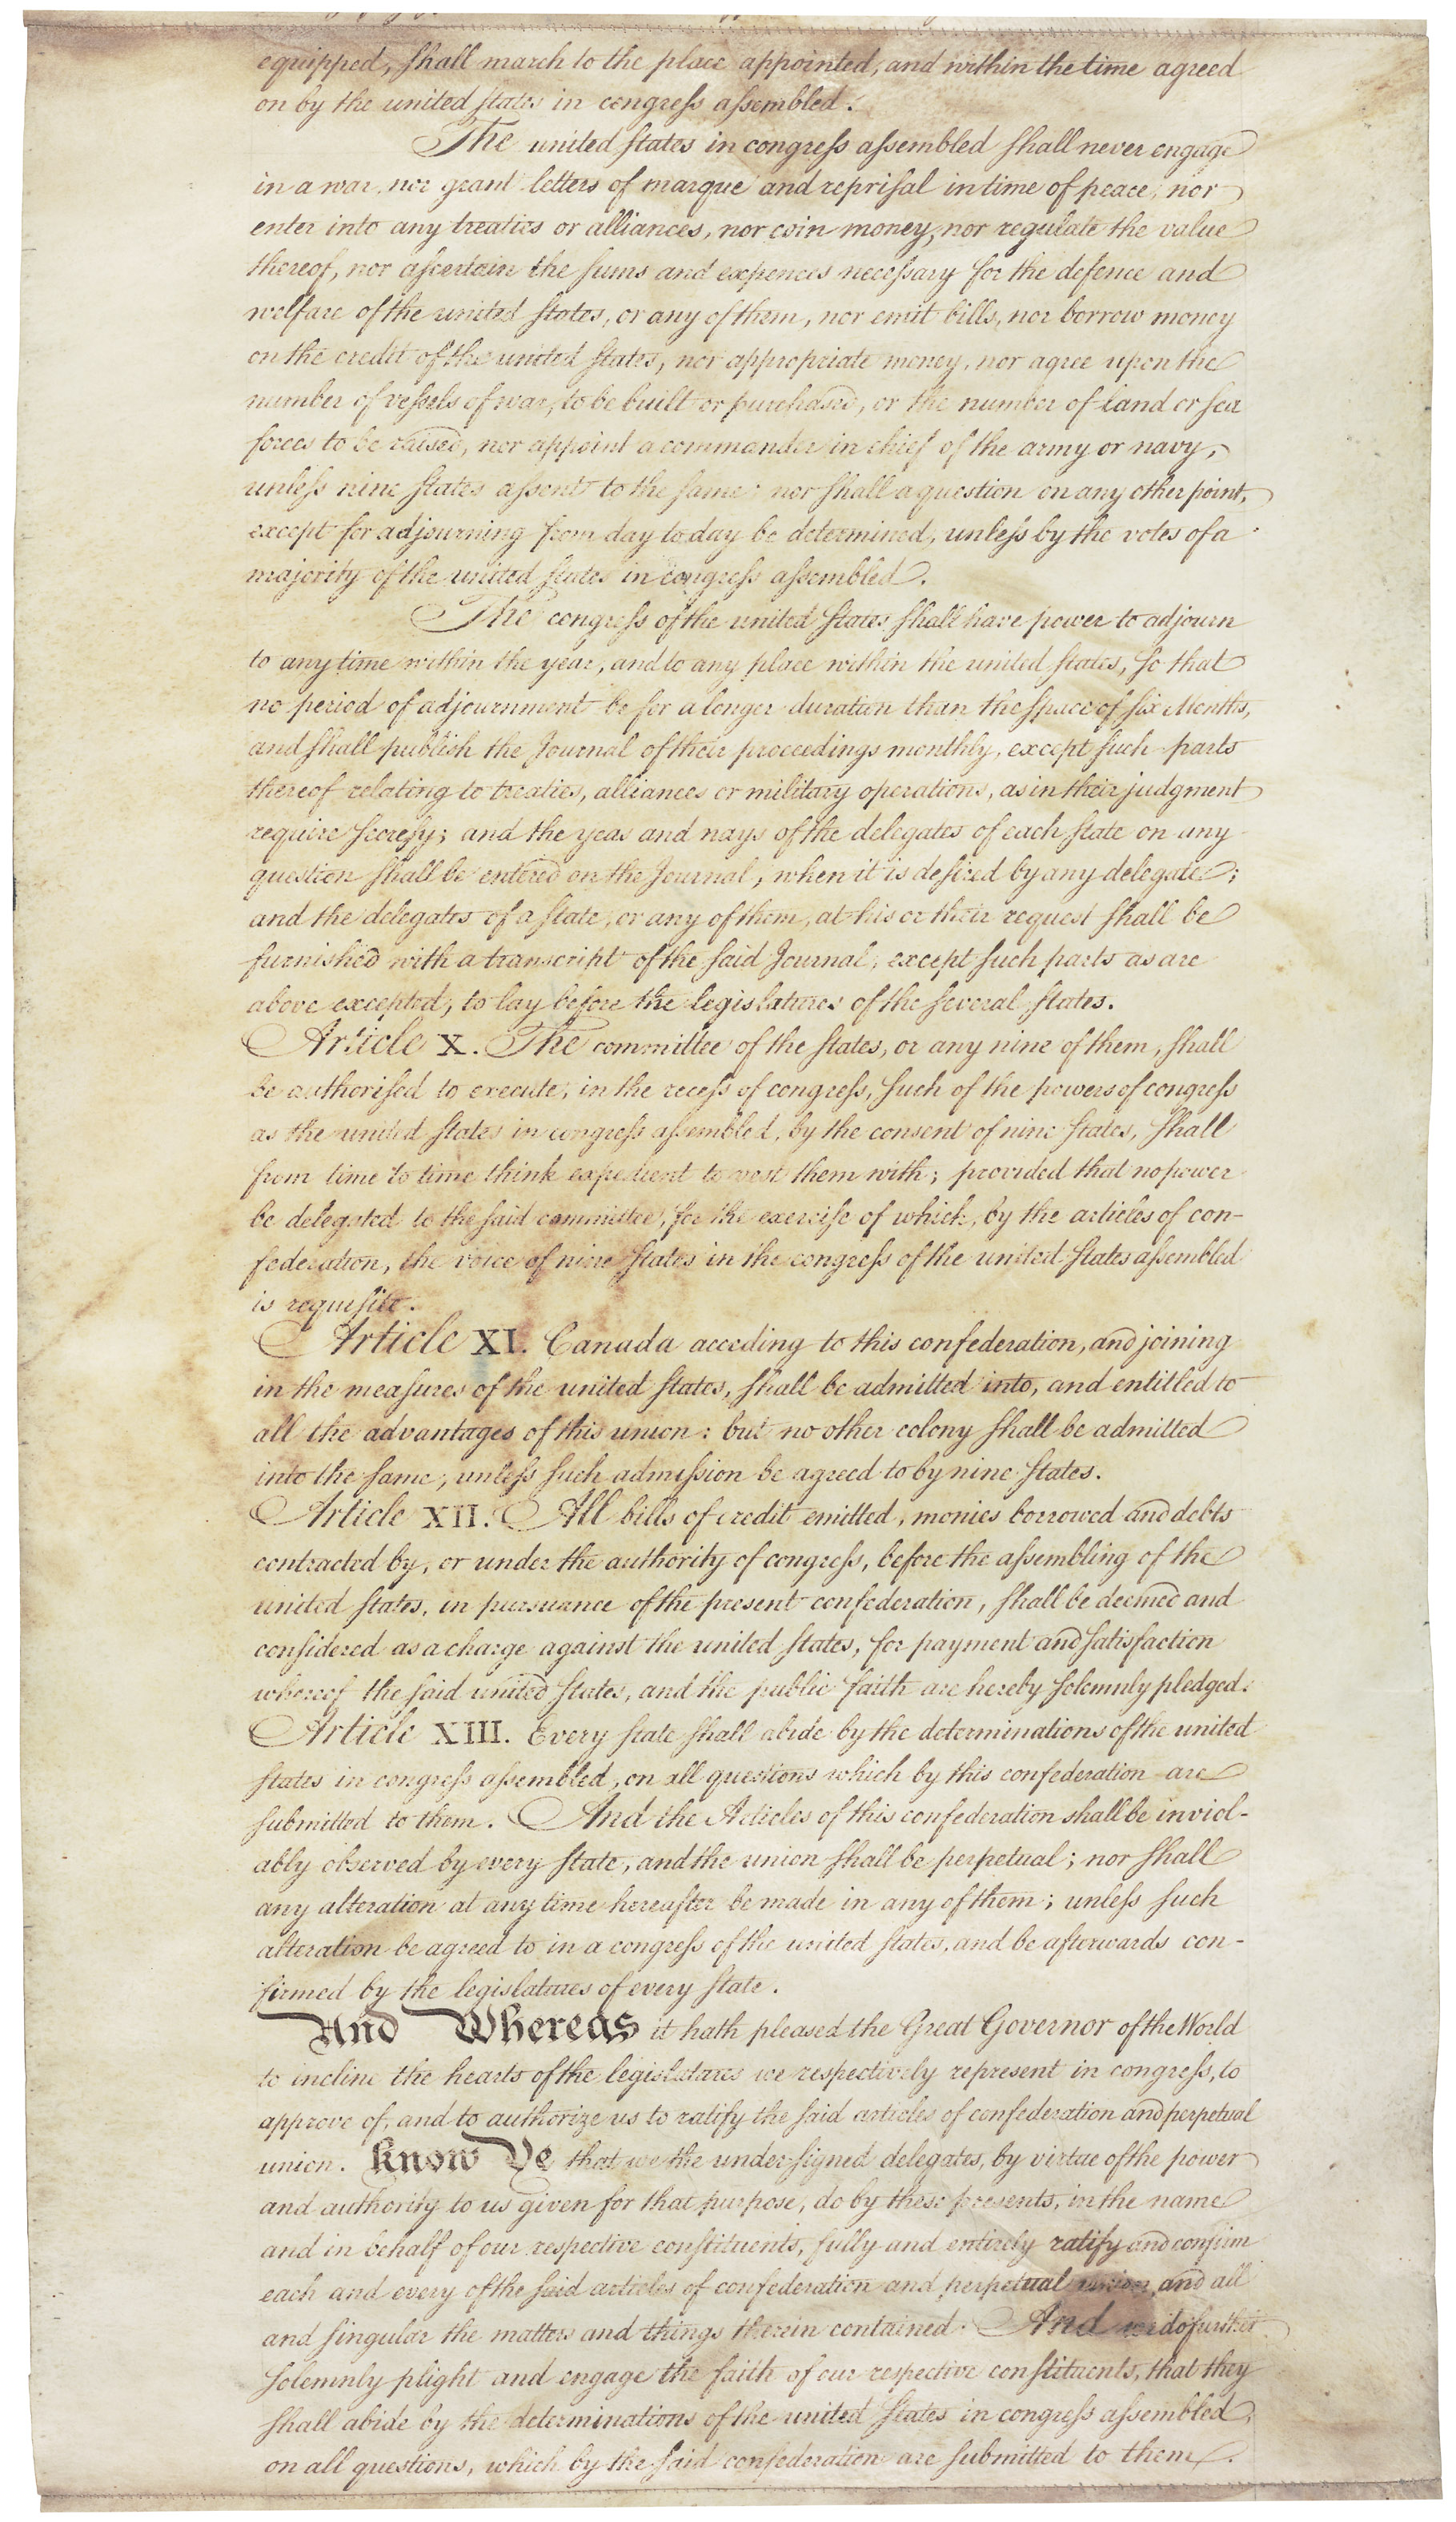 equipped, shall march to the place appointed, and within the time agreed
on by the united states in congress assembled.
The united states in congress assembled shall never engage
in a war, nor grant letters of marque and reprisal in time of peace, nor
enter into any treaties or alliances, nor coin money, nor regulate the value
thereof, nor ascertain the sums and expences necessary for the defence and
welfare of the united states, or any of them, nor emit bills, nor borrow money
on the credit of the united states, nor appropriate money, nor agree upon the
number of vessels of war, to be built or purchased, or the number of land or sea
forces to be raised, nor appoint a commander in chief of the army or navy,
unless nine states assent to the same: nor shall a question on any other point,
except for adjourning from day to day be determined, unless by the votes of a
majority of the united states in congress assembled.
The congress of the united states shall have power to adjourn
to any time within the year, and to any place within the united states, so that
no period of adjournment be for a longer duration than the space of six Months,
and shall publish the Journal of their proceedings monthly, except such parts
thereof relating to treaties, alliances or military operations, as in their judgment
require secresy; and the yeas and nays of the delegates of each state on any
question shall be entered on the Journal, when it is desired by any delegate;
and the delegates of a state, or any of them, at his or their request shall be
furnished with a transcript of the said Journal, except such parts as are
above excepted, to lay before the legislatures of the several states.
Article X. The committee of the states, or any nine of them, shall
be authorised to execute, in the recess of congress, such of the powers of congress
as the united states in congress assembled, by the consent of nine states, shall
from time to time think expedient to vest them with; provided that no power
be delegated to the said committee, for the exercise of which, by the articles of con-
federation, the voice of nine states in the congress of the united states assembled
is requisite.
Article XI. Canada acceding to this confederation, and joining
in the measures of the united states, shall be admitted into, and entitled to
all the advantages of this union: but no other colony shall be admitted
into the same, unless such admission be agreed to by nine states.
Article XII. All bills of credit emitted, monies borrowed and debts
contracted by, or under the authority of congress, before the assembling of the
united states, in pursuance of the present confederation, shall be deemed and
considered as a charge against the united states, for payment and satisfaction
whereof the said united states, and the public faith are hereby solemnly pledged.
Article XIII. Every state shall abide by the determinations of the united
states in congress assembled, on all questions which by this confederation are
submitted to them. And the Articles of this confederation shall be inviol-
ably observed by every state, and the union shall be perpetual; nor shall
any alteration at any time hereafter be made in any of them; unless such
alteration be agreed to in a congress of the united states, and be afterwards con-
firmed by the legislatures of every state.
And Whereas it hath pleased the Great Governor of the World
to incline the hearts of the legislatures we respectively represent in congress, to
approve of, and to authorize us to ratify the said articles of confederation and perpetual
union. Know Ye that we the undersigned delegates, by virtue of the power
and authority to us given for that purpose, do by these presents, in the name
and in behalf of our respective constituents, fully and entirely ratify and confirm
each and every of the said articles of confederation and perpetual union, and all
and singular the matters and things therein contained. And we do further
solemnly plight and engage the faith of our respective constituents, that they
shall abide by the determinations of the united states in congress assembled,
on all questions, which by the said confederation are submitted to them.